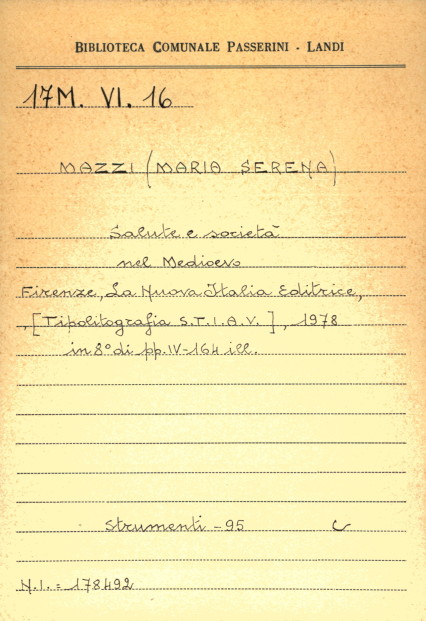 BIBLIOTECA COMUNALE PASSERINI - LANDI
17M. VI. 16
MAZZI (MARIA SERENA)
Salute e società
nel Medioevo
Firenze, La Nuova Italia Editrice,
, [Tipolitografia S.T.I.A.V.], 1978
in 8° di pp. IV-164 ill.
Strumenti - 95 C
N.I. = 178492